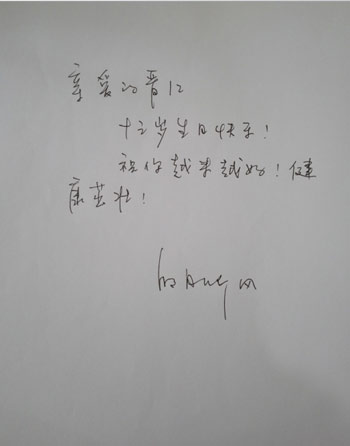 亲爱的晋江
十三岁生日快乐!
祝你越来越好!健
康茁壮!